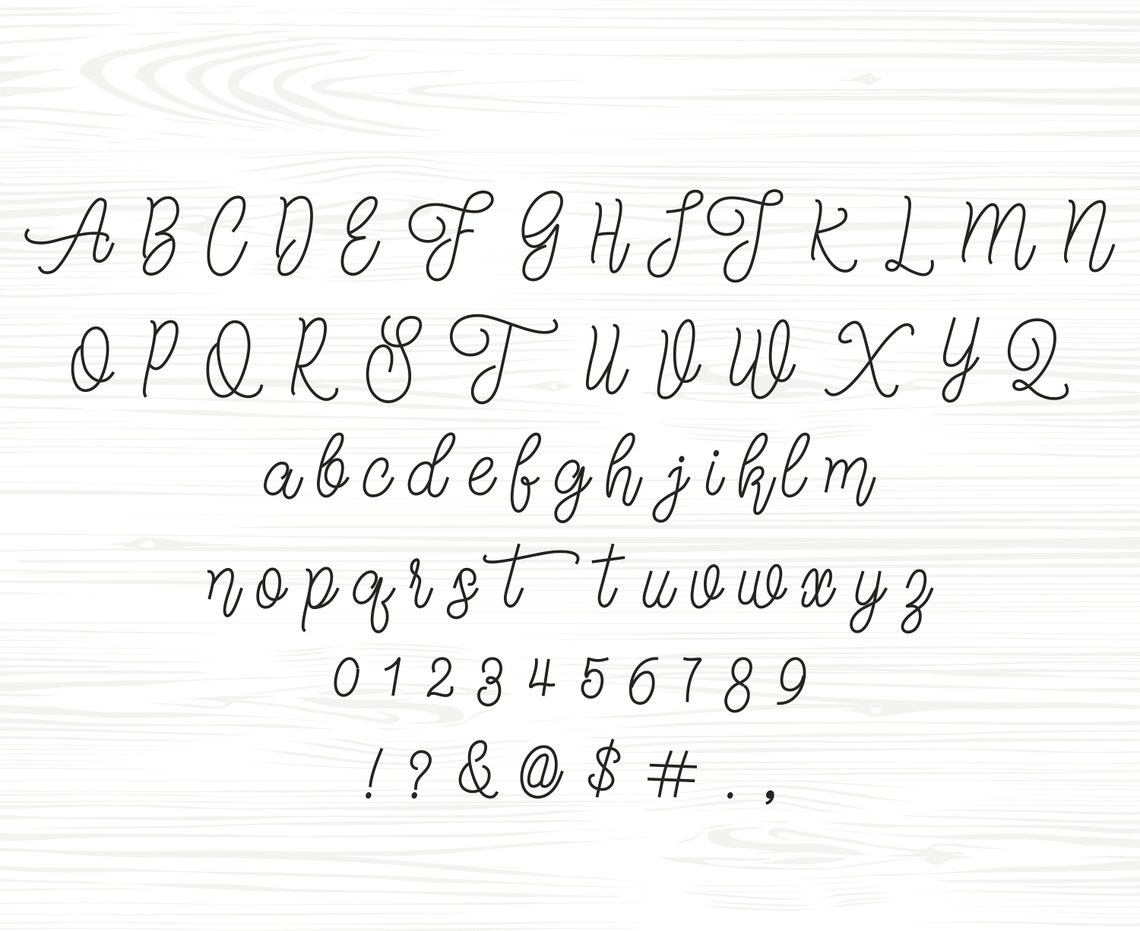 A B C D E F G H I J K L M N
O P Q R S T U V W X Y Z
a b c d e f g h j i k l m
n o p q r s t t u v w x y z
0 1 2 3 4 5 6 7 8 9
! ? & @ $ # . ,